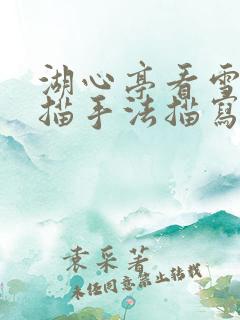 湖心亭看雪
描手法描寫
袁采著
未经同意禁止转载